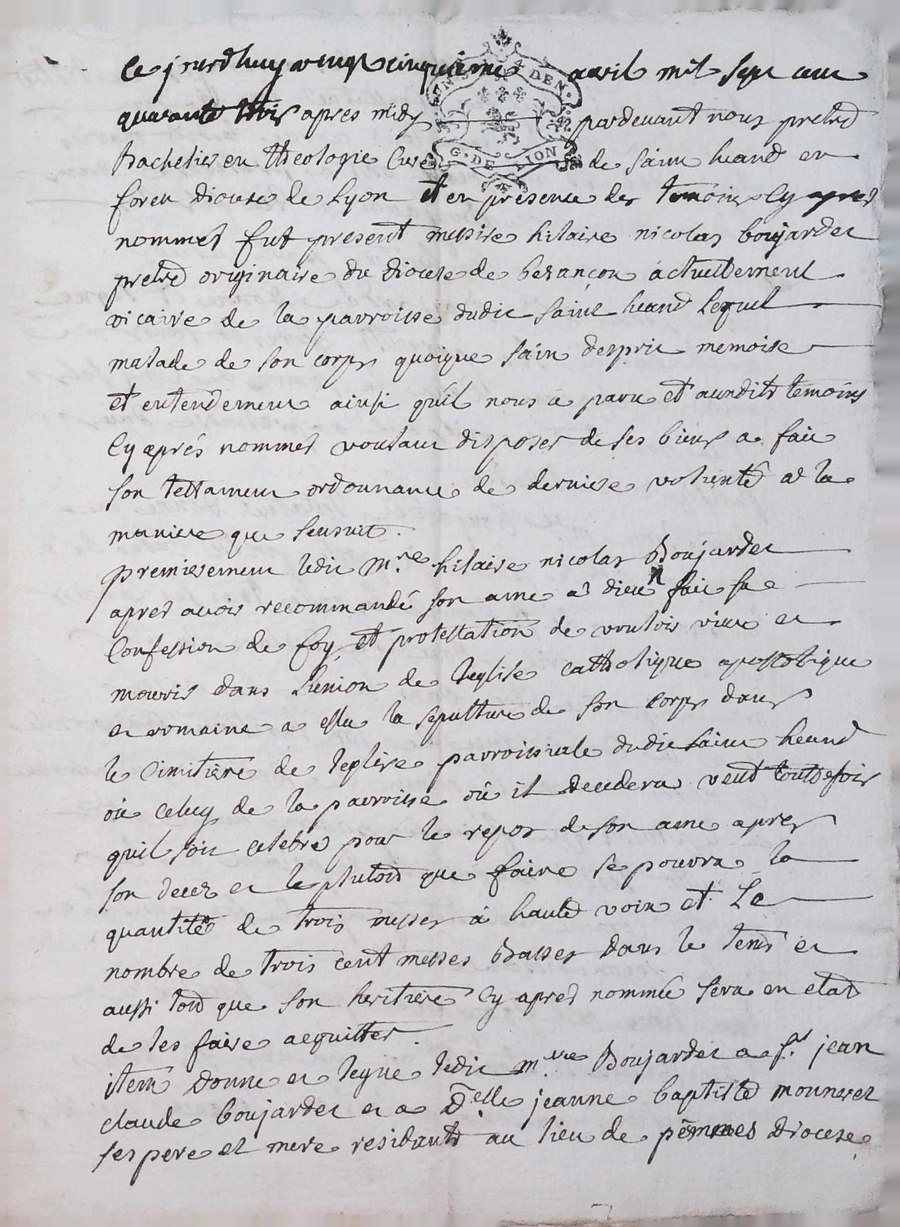 Ce jourdhuy vingt cinquieme avril mil sept cent
quarante trois apres midy pardevant nous pretre
Bachelier en theologie Curé de saint heand en
forest diocese de Lyon et en presence des temoins Cy apres
nommes fut present messire hilaire nicolas boujardet
pretre originaire du diocese de besancon actuellement
vicaire de la parroisse dudit saint heand Lequel
malade de son corps quoique sain desprit memoire
et entendement ainsi quil nous a paru et auxdits temoins
Cy aprés nommes voulant disposer de ses biens a fait
son testament ordonnance de derniere volonté de la
maniere que sensuit.
premierement ledit mre hilaire nicolas Boujardet
apres avoir recommandé son ame a dieu fait sa
Confession de foy et protestation de vouloir vivre et
mourir dans Lunion de leglise catholique apostolique
et romaine a esleu la sepulture de son corps dans
le Cimitière de leglise parroissiale dudit saint heand
où celuy de la parroisse où il decedera veut toutesfois
quil soit celebré pour le repos de son ame apres
son decez et le plutost que faire se pourra la
quantité de trois messes à haute voix et Le
nombre de trois cent messes Basses dans le tems et
aussi tost que son heritiere Cy apres nommée sera en etat
de les faire acquitter.
item donne et legue ledit mre Boujardet a sr jean
claude boujardet et a Delle jeanne baptiste monneret
ses pere et mere residants au lieu de diocese
G. DE LION